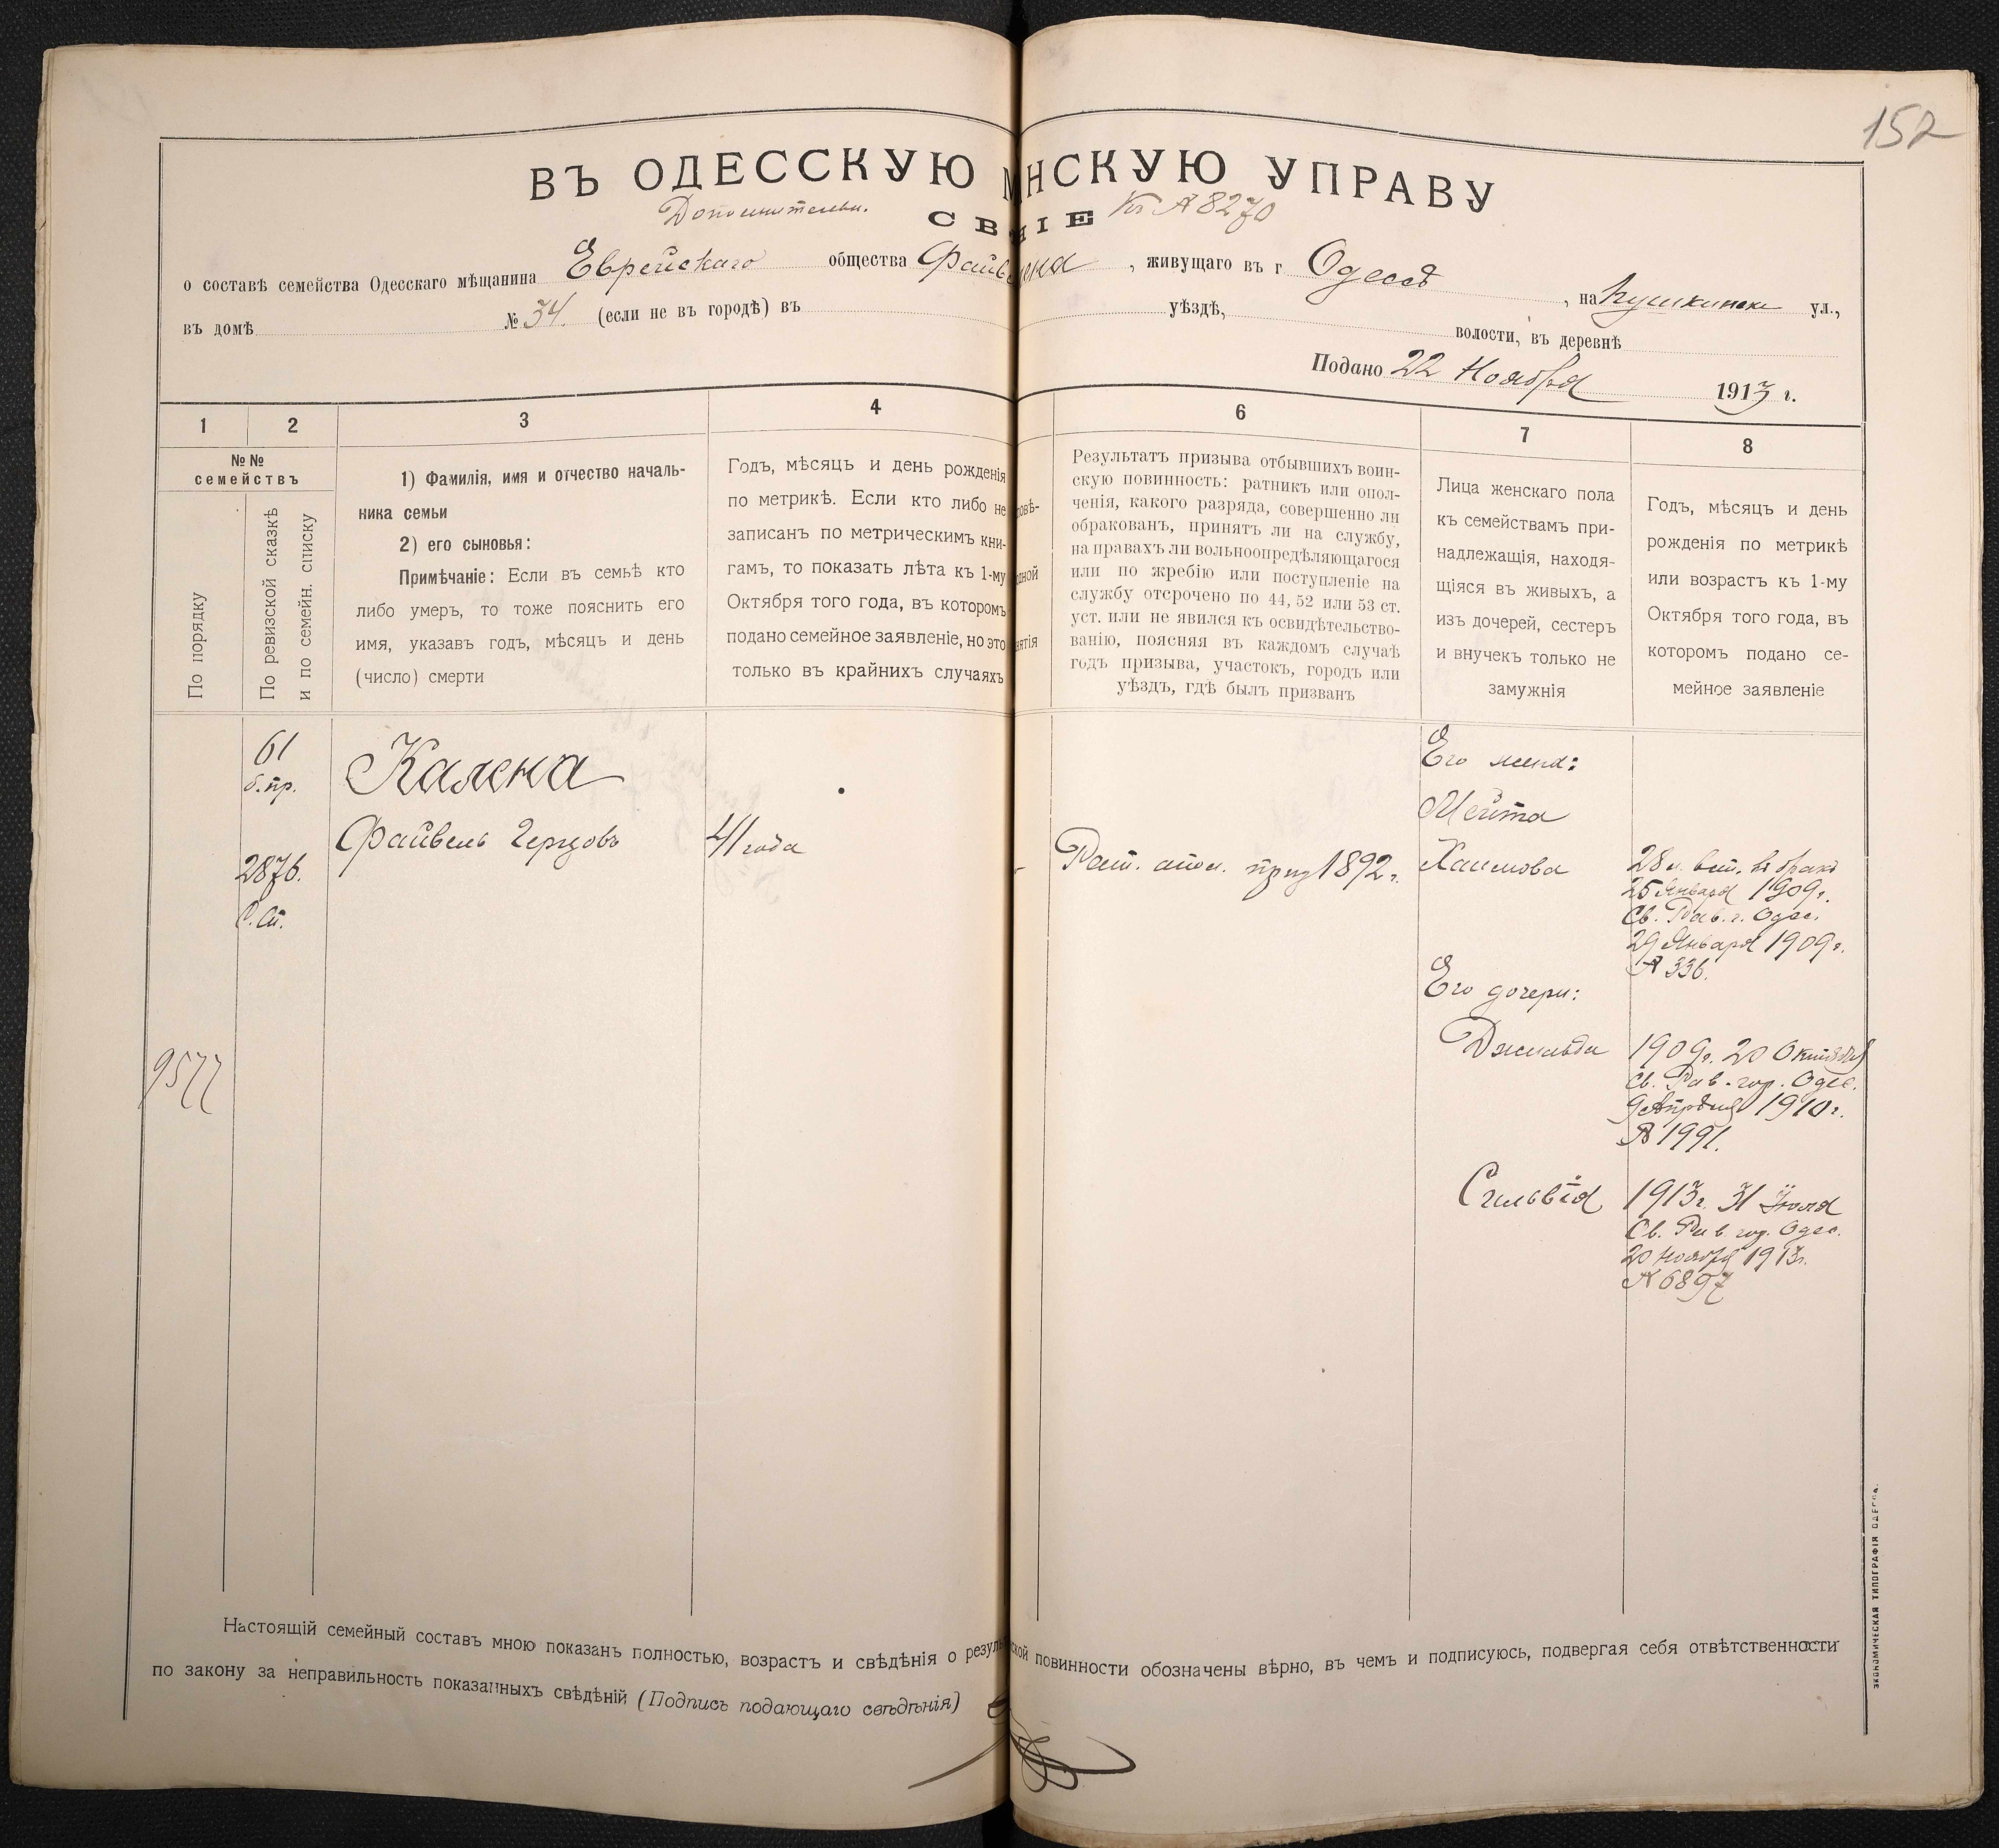 152
ВЪ ОДЕССКУЮ НСКУЮ УПРАВУ
Дополнительн. СВ НІЕ Къ № 8270
о составѣ семейства Одесскаго мѣщанина Еврейскаго общества Файв лена, живущаго въ г Одессѣ, на Пушкинск ул.,
въ домѣ № 34. (если не въ городѣ) въ уѣздѣ, волости, въ деревнѣ
Подано 22 Ноября 1913 г.
1 2 3 4 6 7 8
№№ семействъ
По порядку
По ревизской сказкѣ
и по семейн. списку
1) Фамилія, имя и отчество началь-
ника семьи
2) его сыновья:
Примѣчаніе: Если въ семьѣ кто
либо умеръ, то тоже пояснить его
имя, указавъ годъ, мѣсяцъ и день
(число) смерти
Годъ, мѣсяцъ и день рожденія
по метрикѣ. Если кто либо не
записанъ по метрическимъ кни-
гамъ, то показать лѣта къ 1-му
Октября того года, въ которомъ
подано семейное заявленіе, но это
только въ крайнихъ случаяхъ
повѣ-
одной
нятія
Результатъ призыва отбывшихъ воин-
скую повинность: ратникъ или опол-
ченія, какого разряда, совершенно ли
обракованъ, принятъ ли на службу,
на правахъ ли вольноопредѣляющагося
или по жребію или поступленіе на
службу отсрочено по 44, 52 или 53 ст.
уст. или не явился къ освидѣтельство-
ванію, поясняя въ каждомъ случаѣ
годъ призыва, участокъ, городъ или
уѣздъ, гдѣ былъ призванъ
Лица женскаго пола
къ семействамъ при-
надлежащія, находя-
щіяся въ живыхъ, а
изъ дочерей, сестеръ
и внучекъ только не
замужнія
Годъ, мѣсяцъ и день
рожденія по метрикѣ
или возрастъ къ 1-му
Октября того года, въ
которомъ подано се-
мейное заявленіе
61
б. пр.
2876.
С. Сп.
9577
Калена
Файвель Герцовъ
41 года
Рат. опол. приз 1892 г.
Его жена:
Мейта
Хаимова
28 л. вст. въ бракъ
25 Января 1909 г.
Св. Рав. г. Одес.
29 Января 1909 г.
№ 336.
Его дочери:
Джильда
1909 г. 20 Октября
Св. Рав. гор. Одес.
9 Апрѣля 1910 г.
№ 1991.
Сильвія
1913 г. 31 Іюля
Св. Рав. гор. Одес.
20 Ноября 1913 г.
№ 6897
Настоящій семейный составъ мною показанъ полностью, возрастъ и свѣдѣнія о резуль ской повинности обозначены вѣрно, въ чемъ и подписуюсь, подвергая себя отвѣтственности
по закону за неправильность показанныхъ свѣдѣній (Подпись подающаго свѣдѣнія)
ЭКОНОМИЧЕСКАЯ ТИПОГРАФІЯ ОДЕССА.